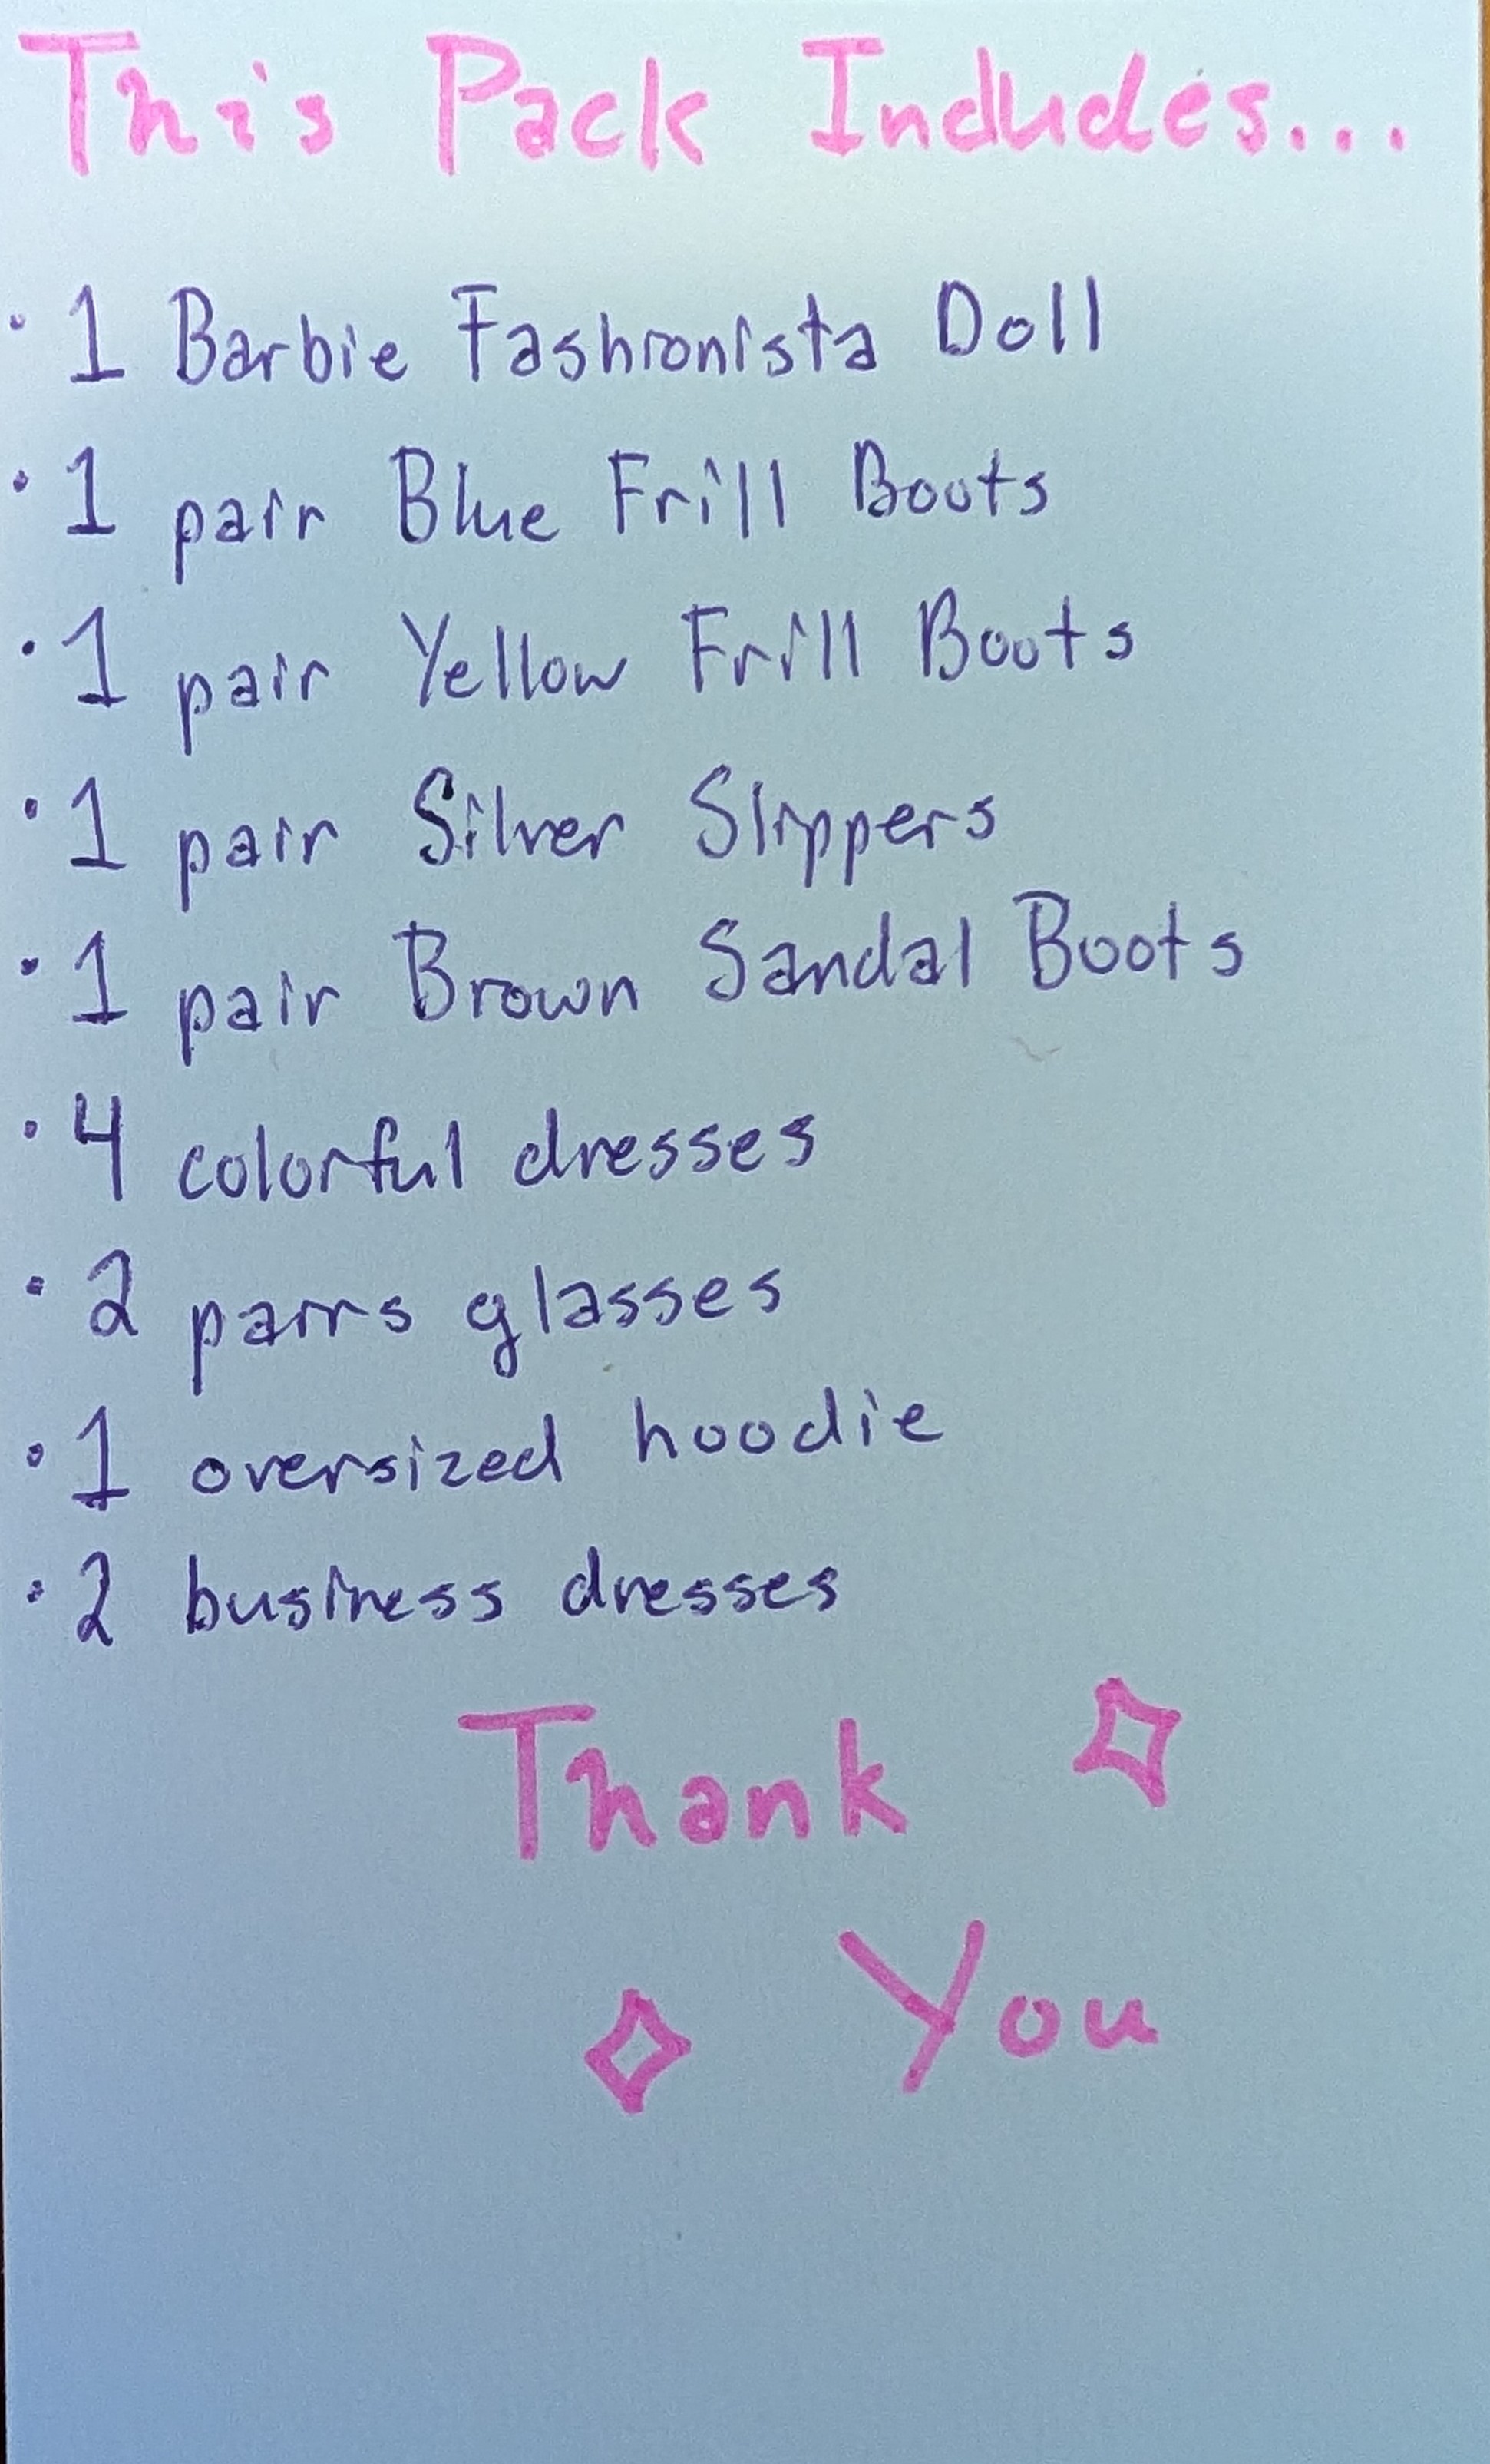 This Pack Includes...
· 1 Barbie Fashionista Doll
· 1 pair Blue Frill Boots
· 1 pair Yellow Frill Boots
· 1 pair Silver Slippers
· 1 pair Brown Sandal Boots
· 4 colorful dresses
· 2 pairs glasses
· 1 oversized hoodie
· 2 business dresses
Thank
You